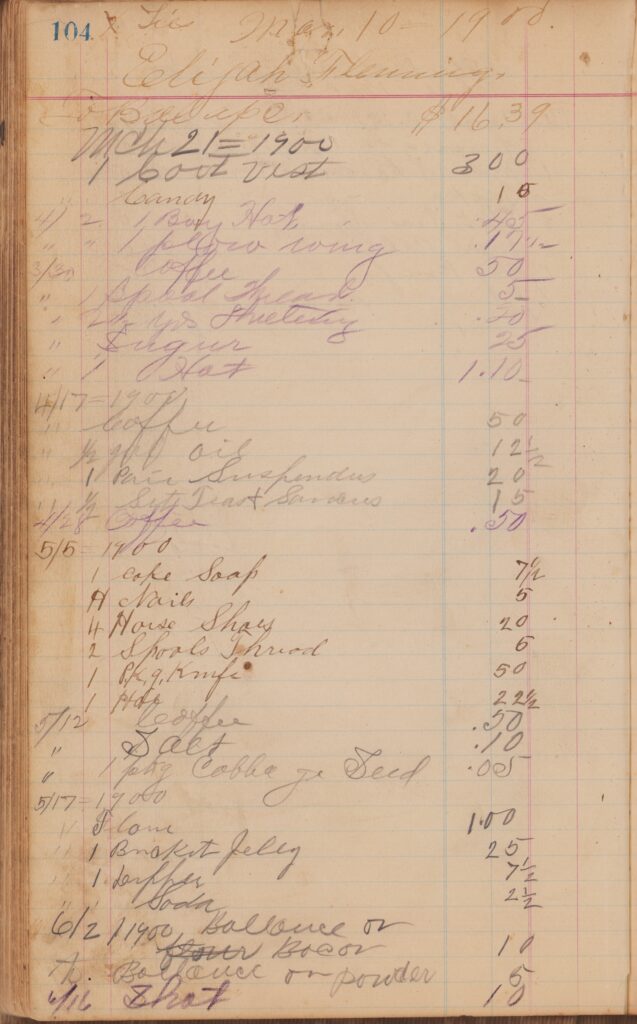 104 Mar. 10 = 1900.
Elijah Flenning.
$ 16.39
Mch 21 = 1900
1 Coot Vest 300
" Candy 15
4/ 2 1 Boy Hat .45
" " 1 plow wing .17 1/2
Coffee 50
" 1 Spool Thread 5
" yds Sheeting .20
" Sugur 25
" 1 Hat 1.10
4/17 = 1900
" Coffee 50
" 1/2 gal oil 12 1/2
1 Pair Suspendus 20
" 1/2 Set Teas & 15
4/28 Coffee .50
5/5 = 1900
1 cake Soap 7 1/2
Nails 5
4 Horse Shoes 20
2 Spools Thread
1 Knife 50
1 22 1/2
5/12 Coffee .50
" Salt .10
" 1 pkg Cabbage Seed .05
5/17 = 1900
" 1.00
" 1 Jelly 25
" 1 7 1/2
" Soda 2 1/2
6/2 / 1900 Ballance on
Bacon 10
Ballance on powder 5
6/16 Shot 10